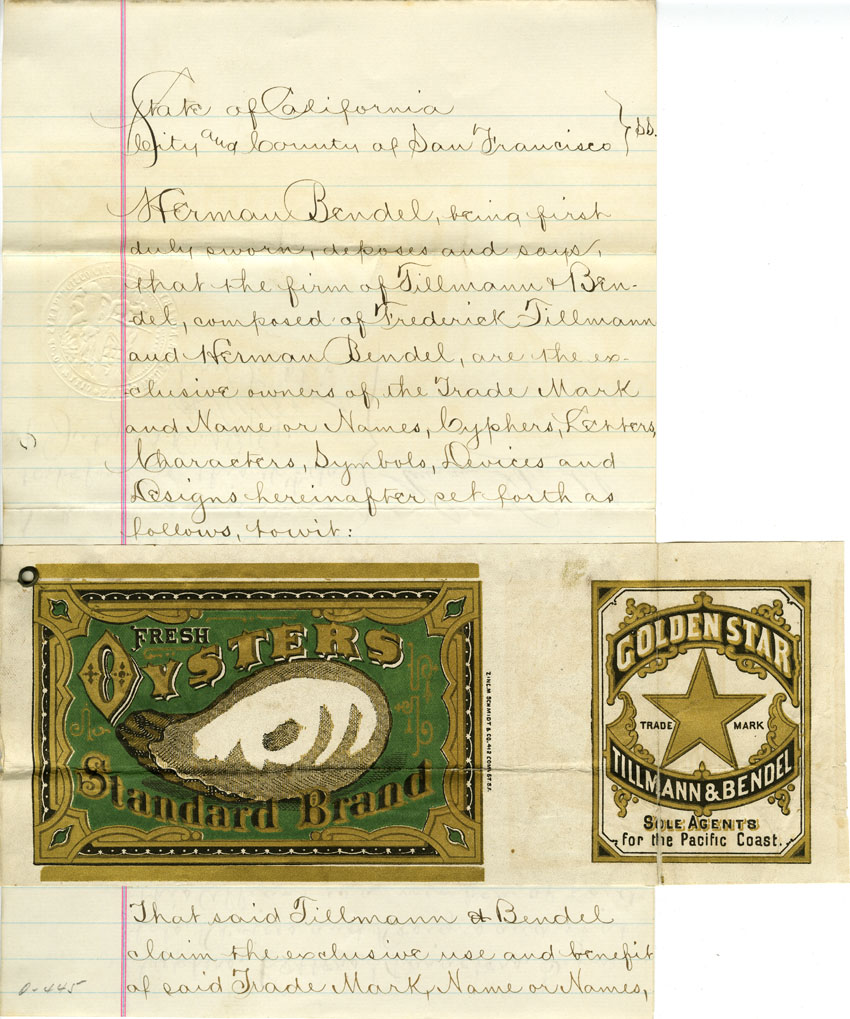 State of California
City and County of San Francisco } ss.
Herman Bendel, being first
duly sworn, deposes and says,
that the firm of Tillmann & Ben-
del, composed of Frederick Tillmann
and Herman Bendel, are the ex-
clusive owners of, the Trade Mark
and Name or Names, Cyphers, Letters,
Characters, Symbols, Devices and
Designs hereinafter set forth as
follows, towit:
FRESH
OYSTERS
Standard Brand
GOLDEN STAR
TRADE MARK
TILLMANN & BENDEL
SOLE AGENTS
for the Pacific Coast.
That said Tillmann & Bendel
claim the exclusive use and benefit
of said Trade Mark, Name or Names,
0-445